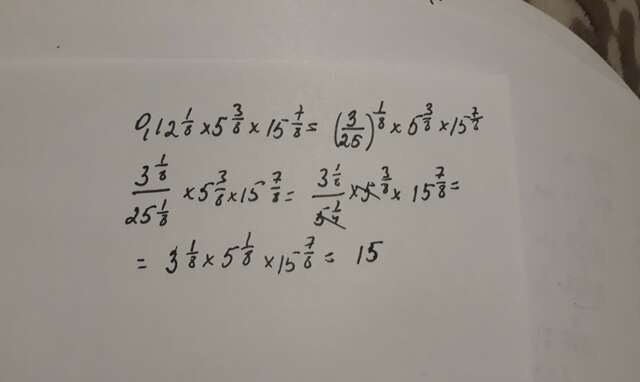 0,12^{1/8} × 5^{3/8} × 15^{7/8} = (3/25)^{1/8} × 5^{3/8} × 15^{7/8}
3^{1/8}/25^{1/8} × 5^{3/8} × 15^{7/8} = 3^{1/8}/5^{1/4} × 5^{3/8} × 15^{7/8} =
= 3^{1/8} × 5^{1/8} × 15^{7/8} = 15